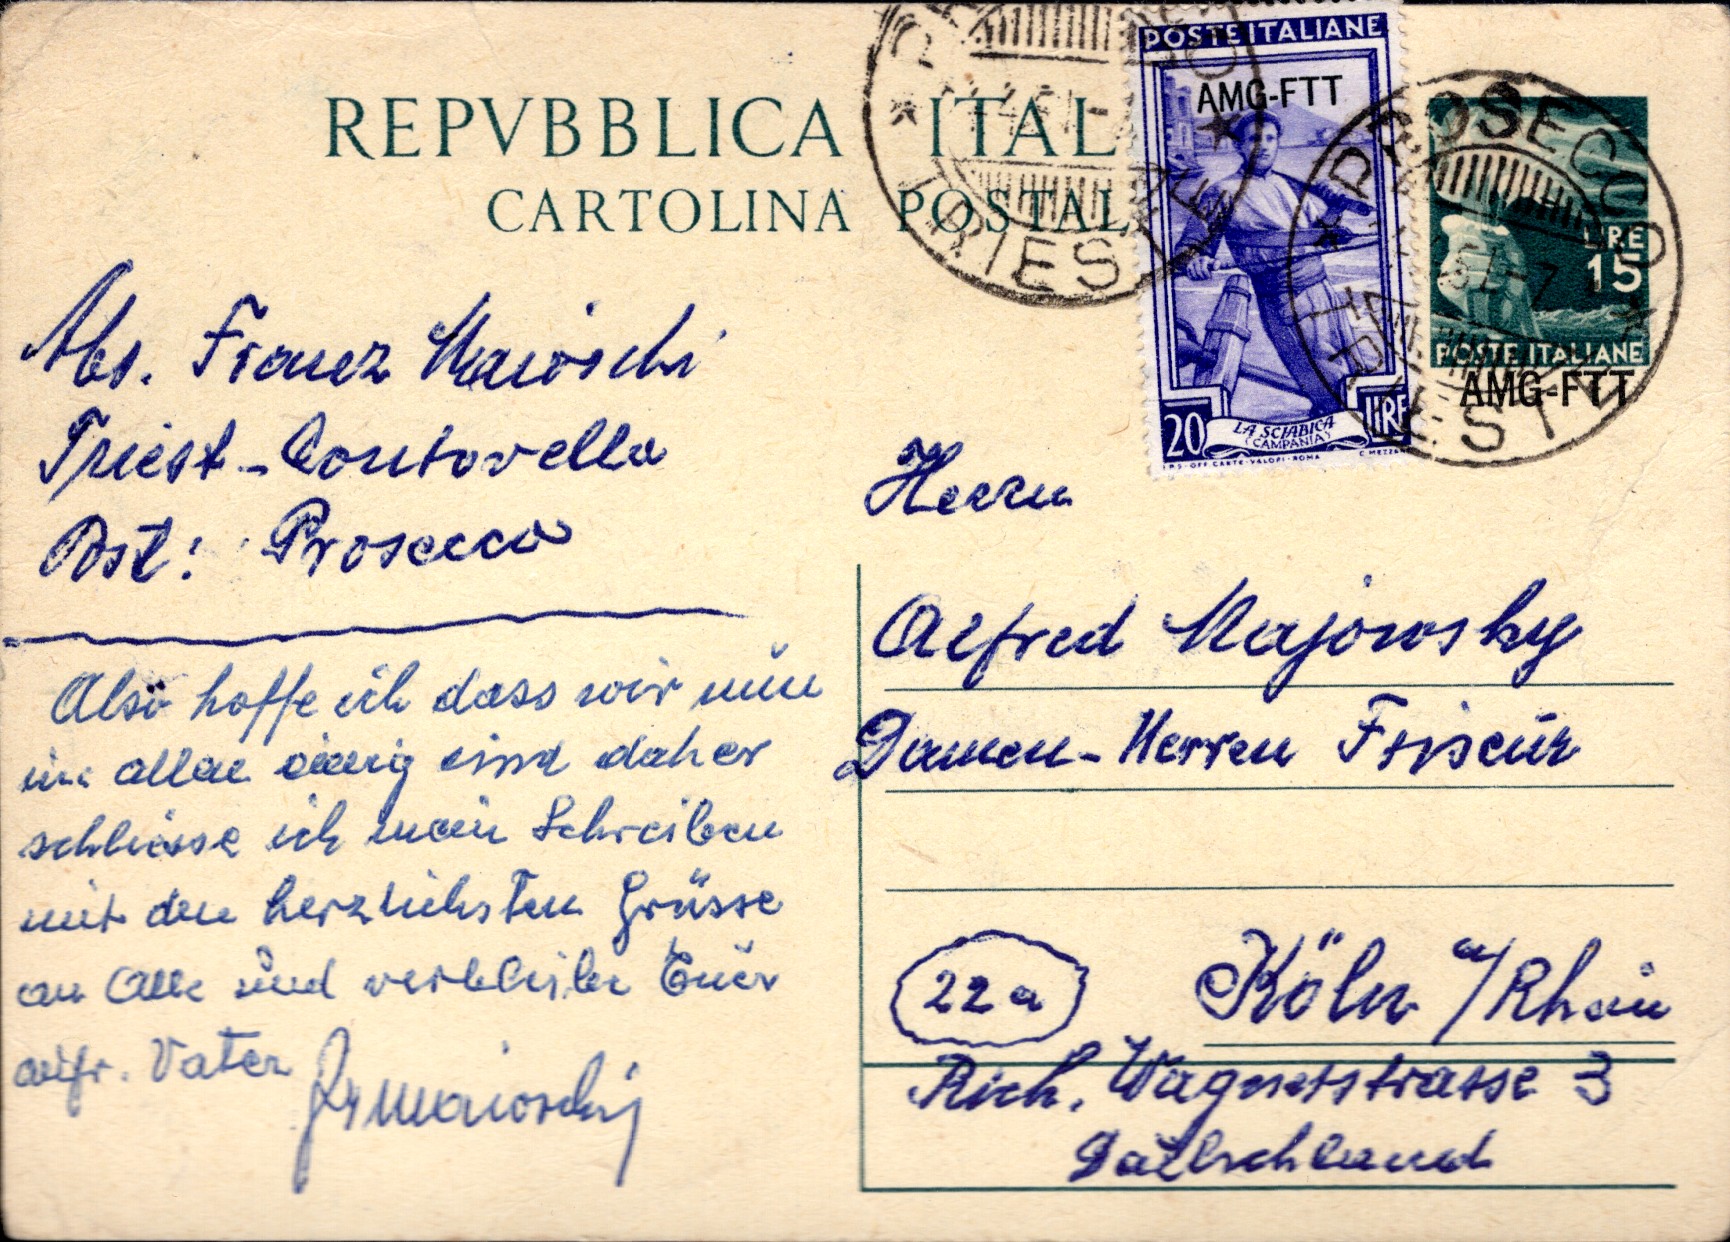 REPVBBLICA ITAL
CARTOLINA POSTAL
PROSECCO
TRIESTE
POSTE ITALIANE
AMG-FTT
20 LIRE
LA SCIABICA
(CAMPANIA)
I.P.S-OFF CARTE-VALORI-ROMA C MEZZANA
PROSECCO
TRIESTE
LIRE
15
POSTE ITALIANE
AMG-FTT
Abs. Franz Maioschi
Triest-Contovello
Post: Prosecco
Also hoffe ich dass wir nun
in allem einig sind daher
schliesse ich mein Schreiben
mit den herzlichsten Grüsse
an Alle und verbleibe Euer
aufr. Vater
Frmaioschi
Herrn
Alfred Majowsky
Damen-Herren Friseur
22a
Köln a/Rhein
Rich. Wagnerstrasse 3
Deutschland